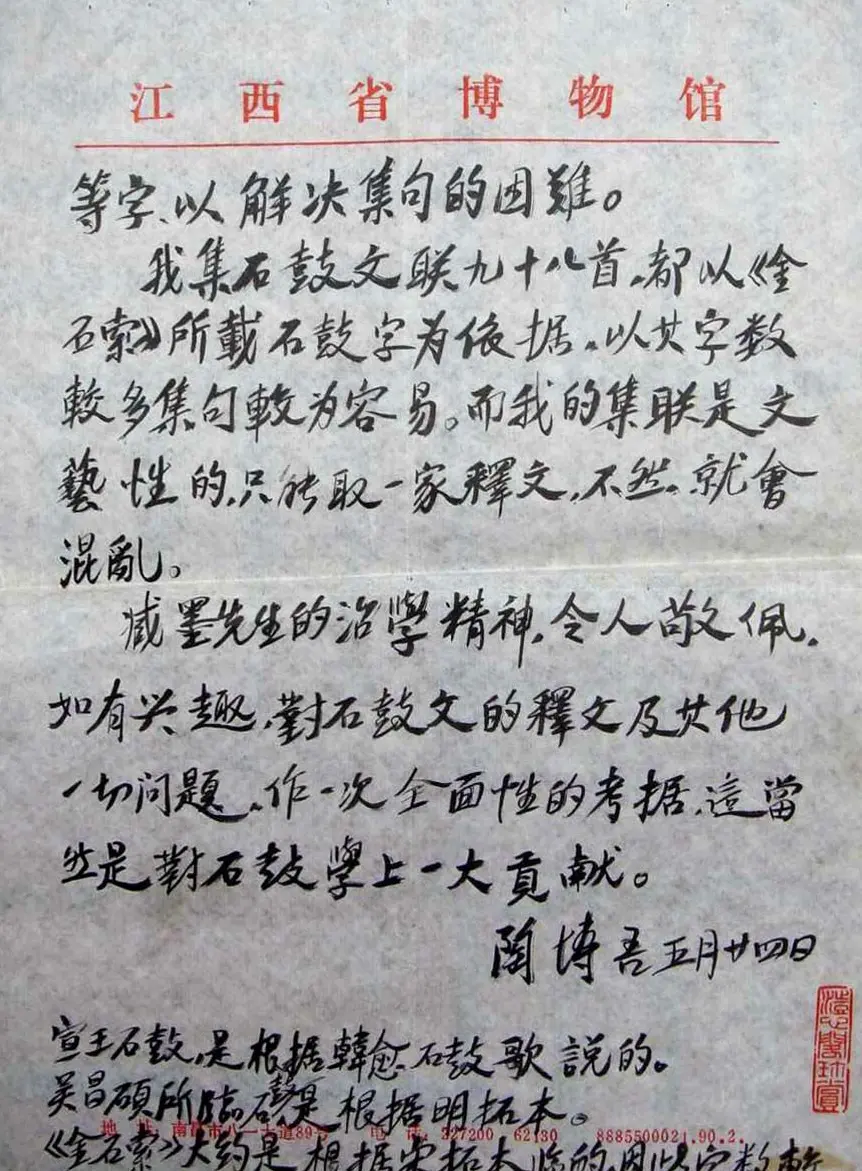 江西省博物馆
等字、以解决集句的困難。
我集石鼓文联九十八首,都以《金
石索》所載石鼓字为依据,以其字数
較多集句較为容易。而我的集联是文
藝性的,只能取一家釋文,不然,就會
混亂。
臧墨先生的治學精神,令人敬佩,
如有兴趣,對石鼓文的釋文及其他
一切问題,作一次全面性的考据,這當
然是對石鼓學上一大貢献。
陶博吾五月廿四日
宣王石鼓,是根据韓愈石鼓歌説的。
吴昌硕所臨石鼓是根据明拓本。
地址:南昌市八一大道89号 电话:327200 62130 8885500021.90.2.
《金石索》大约是根据宋拓本临的,因此字数较